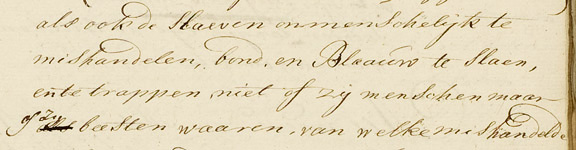 als ook de Slaeven onmenschelijk te
mishandelen, bond en Blaauw te slaen,
en te trappen, niet of zij menschen maar
of zy beesten waaren, van welke mishandeld